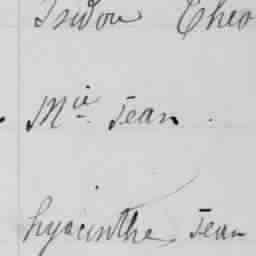 Isidore Theo
Mie Jean
hyacinthe Jean